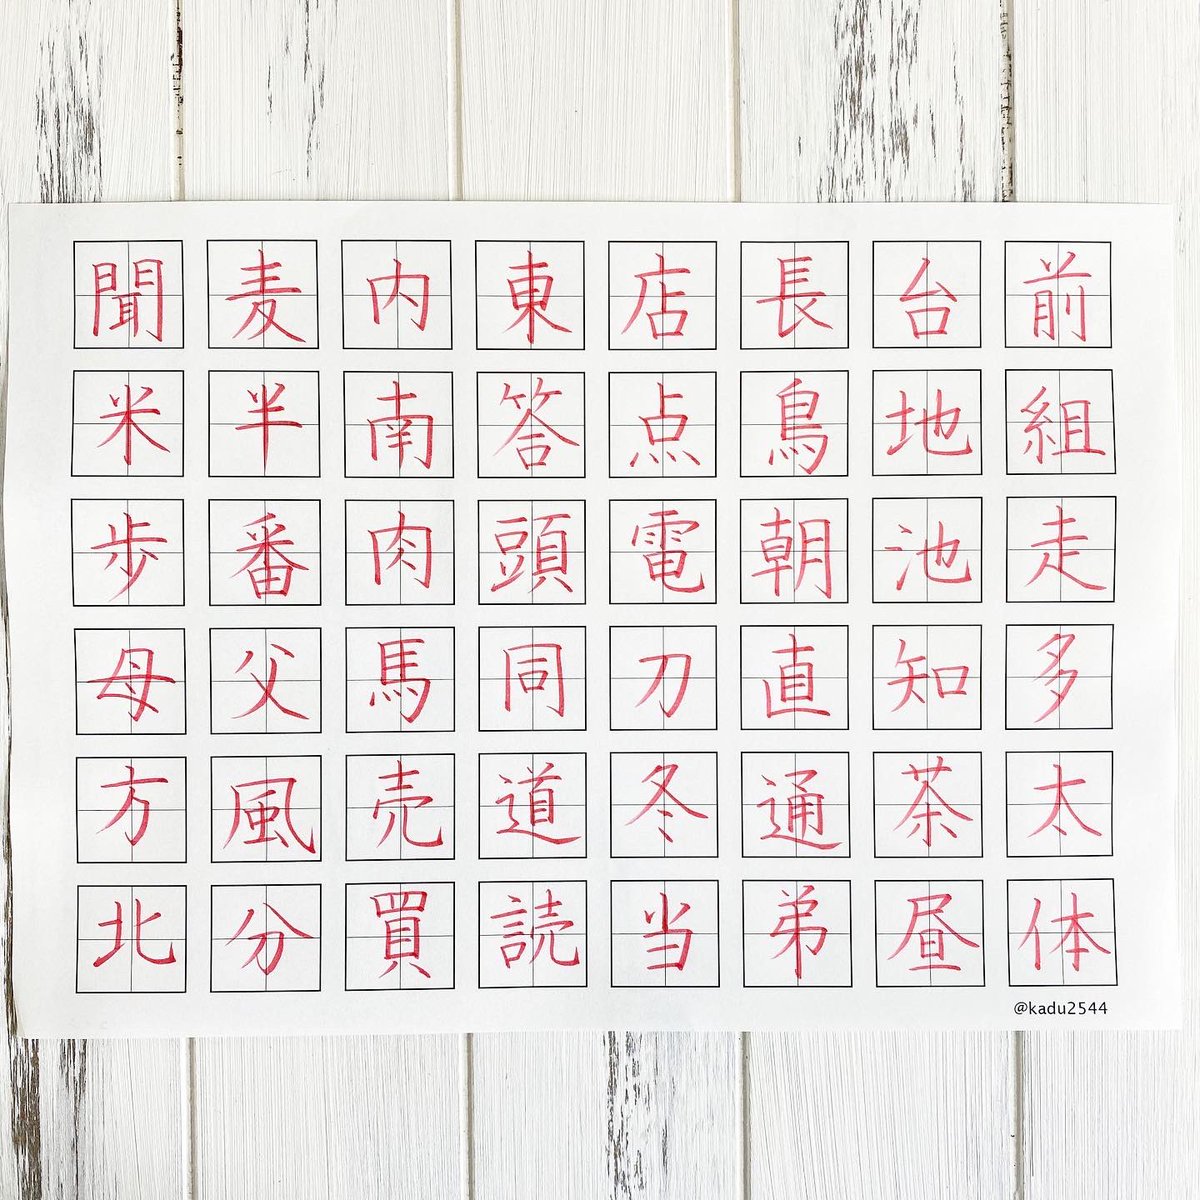 前組走多太体
台地池知茶昼
長鳥朝直通弟
店点電刀冬当
東答頭同道読
内南肉馬売買
麦半番父風分
聞米歩母方北
@kadu2544